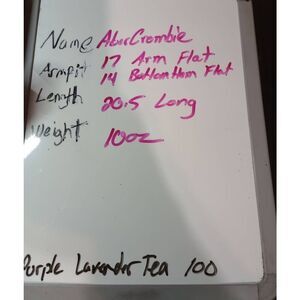 Name AberCrombie
Armpit 17 Arm Flat
14 Bottom Hem Flat
Length 20.5 Long
Weight 10oz
Purple Lavender Tea 100